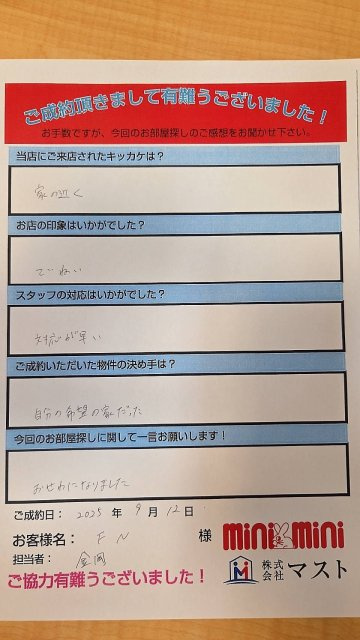 ご成約頂きまして有難うございました！
お手数ですが、今回のお部屋探しのご感想をお聞かせ下さい。
当店にご来店されたキッカケは？
家の近く
お店の印象はいかがでした？
ていねい
スタッフの対応はいかがでした？
対応が早い
ご成約いただいた物件の決め手は？
自分の希望の家だった
今回のお部屋探しに関して一言お願いします！
おせわになりました
ご成約日： 2025 年 9 月 12 日
お客様名： F N 様
mini mini
担当者： 金岡
株式会社 マスト
ご協力有難うございました！